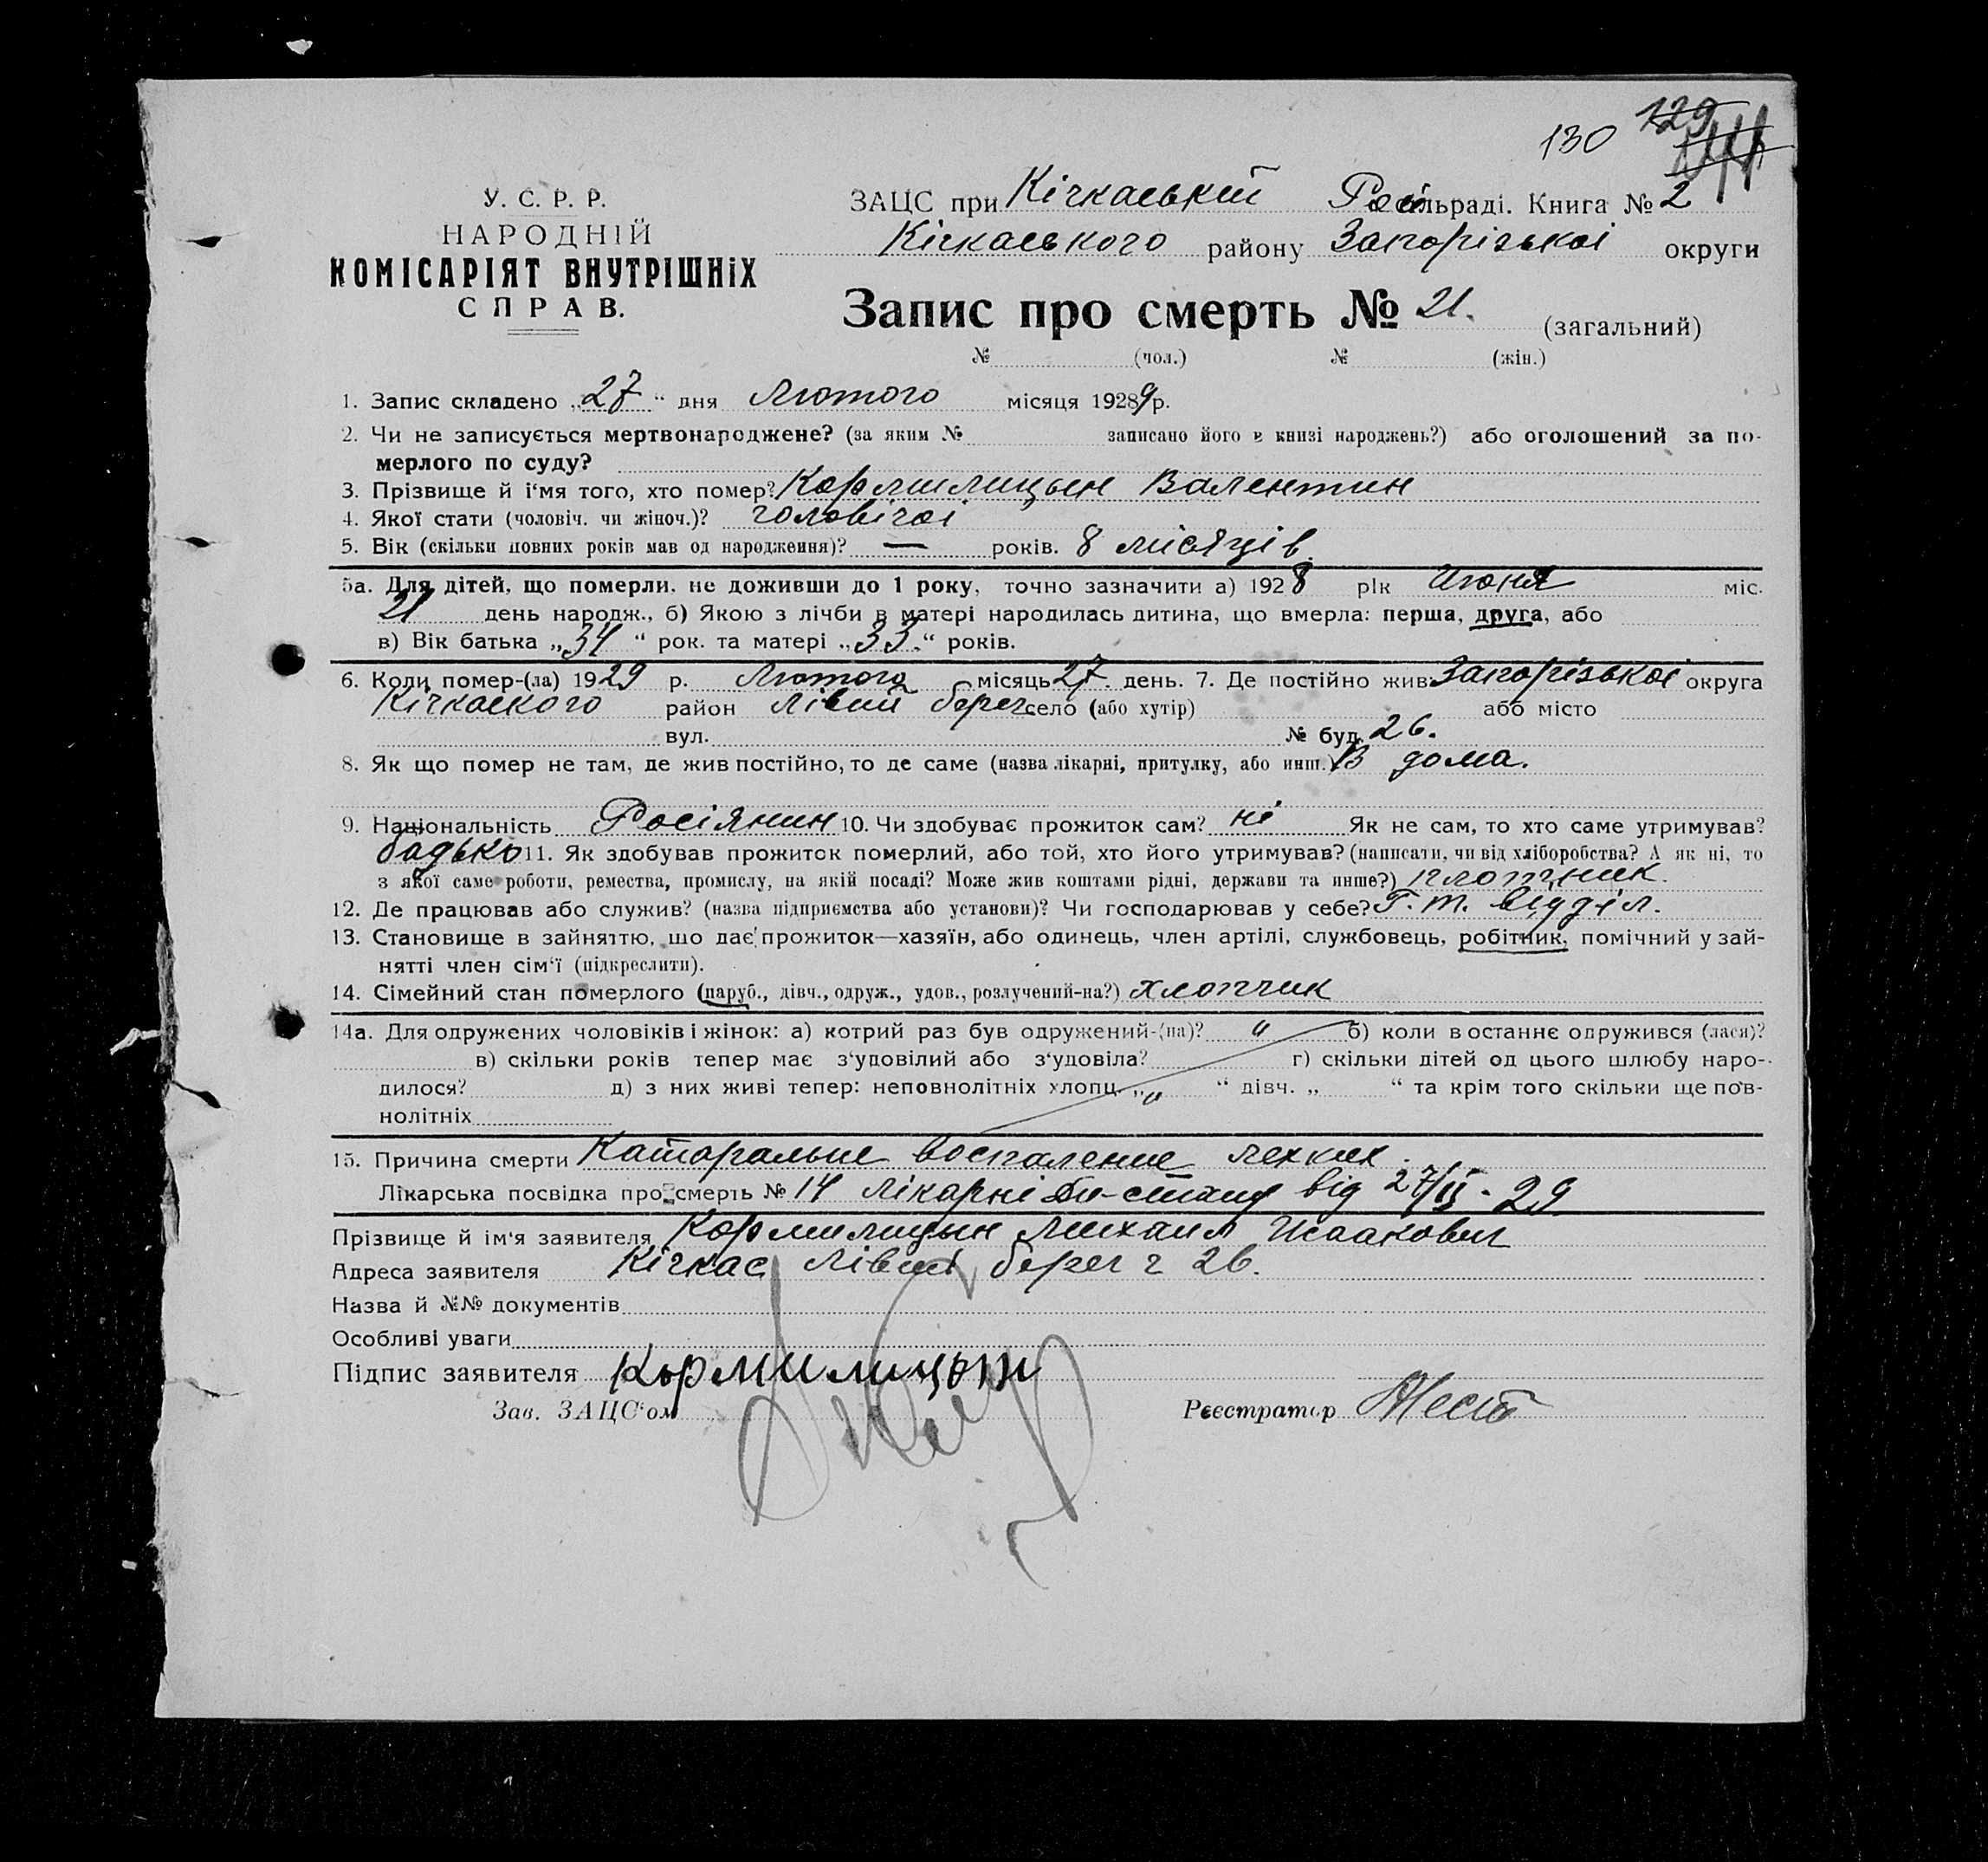 130 129
У. С. Р. Р.
НАРОДНІЙ
КОМІСАРІЯТ ВНУТРІШНІХ
СПРАВ.
ЗАЦС при Кічкаській Рай сільраді. Книга № 2
Кічкаського району Запорізькоі округи
Запис про смерть № 21. (загальний)
№ (чол.) № (жін.)
1. Запис складено „27“ дня Лютого місяця 1928 9 р.
2. Чи не записується мертвонароджене? (за яким № записано його в книзі народжень?) або оголошений за по-
мерлого по суду?
3. Прізвище й і‘мя того, хто помер? Кормилицын Валентин
4. Якої стати (чоловіч. чи жіноч.)? чоловічоі
5. Вік (скільки повних років мав од народження)? — років. 8 місяців.
5а. Для дітей, що померли, не доживши до 1 року, точно зазначити а) 1928 рік Июня міс.
21 день народж., б) Якою з лічби в матері народилась дитина, що вмерла: перша, друга, або
в) Вік батька „34“ рок. та матері „33.“ років.
6. Коли помер-(ла) 1929 р. Лютого місяць 27. день. 7. Де постійно жив Запорізькоі округа
Кічкаского район лівий берег село (або хутір) або місто
вул. № буд. 26.
8. Як що помер не там, де жив постійно, то де саме (назва лікарні, притулку, або инш.) В дома.
9. Національність Росіянин 10. Чи здобуває прожиток сам? ні Як не сам, то хто саме утримував?
бадько 11. Як здобував прожиток померлий, або той, хто його утримував? (написати, чи від хліборобства? А як ні, то
з якої саме роботи, ремества, промислу, на якій посаді? Може жив коштами рідні, держави та инше?) плотник.
12. Де працював або служив? (назва підприємства або установи)? Чи господарював у себе? Г. т. відділ.
13. Становище в зайняттю, що дає прожиток—хазяїн, або одинець, член артілі, службовець, робітник, помічний у зай-
нятті член сім‘ї (підкреслити).
14. Сімейний стан померлого (паруб., дівч., одруж., удов., розлучений-на?) хлопчик
14а. Для одружених чоловіків і жінок: а) котрий раз був одружений-(на)? „ б) коли востаннє одружився (лася)?
в) скільки років тепер має з‘удовілий або з‘удовіла? г) скільки дітей од цього шлюбу наро-
дилося? д) з них живі тепер: неповнолітніх хлопц. „ “ дівч. „ “ та крім того скільки ще пов-
нолітніх
15. Причина смерти Каторальне воспаление легких.
Лікарська посвідка про смерть № 14 лікарні від 27/II - 29
Прізвище й ім‘я заявителя Кормилицын Михаил Исаакович
Адреса заявителя Кічкас лівий берег ч 26.
Назва й №№ документів
Особливі уваги
Підпис заявителя Кормилицын
Зав. ЗАЦС‘ом Реєстратор